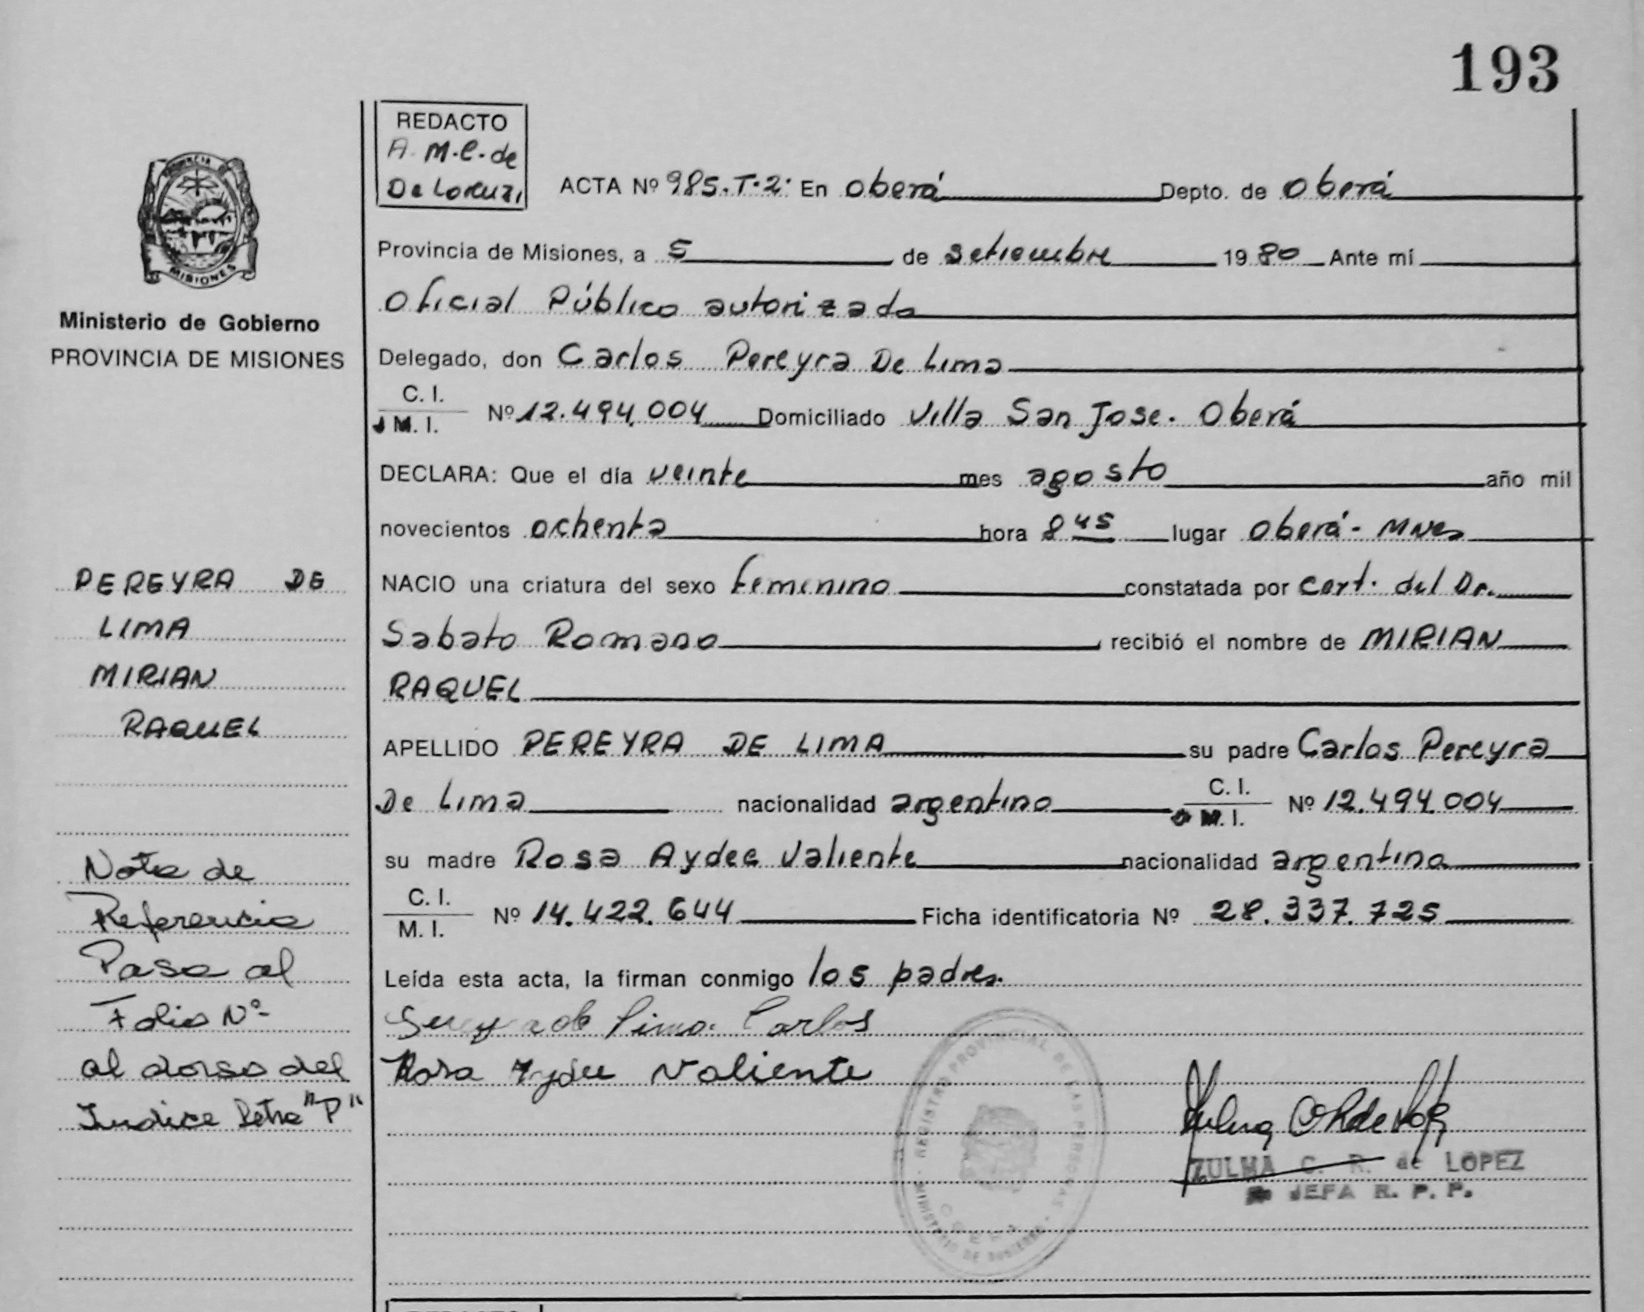 193
REDACTO
A. M. C. de
De Lorenzi
ACTA Nº 985.T.2: En Oberá Depto. de Oberá
Provincia de Misiones, a 5 de setiembre 1980 Ante mí
Oficial Público autorizado
Delegado, don Carlos Pereyra De Lima
C. I.
M. I. Nº 12.494.004 Domiciliado Villa San Jose. Oberá
DECLARA: Que el día veinte mes agosto año mil
novecientos ochenta hora 8 45 lugar Oberá - Mnes
NACIO una criatura del sexo femenino constatada por cert. del Dr.
Sabato Romano recibió el nombre de MIRIAN
RAQUEL
APELLIDO PEREYRA DE LIMA su padre Carlos Pereyra
De Lima nacionalidad argentino C. I. M. I. Nº 12.494.004
su madre Rosa Aydee Valiente nacionalidad argentina
C. I.
M. I. Nº 14.422.644 Ficha identificatoria Nº 28.337.725
Leída esta acta, la firman conmigo los padres.
de Lima Carlos
Rosa Aydee Valiente
ZULMA C. R. de LOPEZ
JEFA R. P. P.
REGISTRO PROVINCIAL DE LAS PERSONAS
MINISTERIO DE GOBIERNO
OBERA
PROVINCIA
MISIONES
Ministerio de Gobierno
PROVINCIA DE MISIONES
PEREYRA DE
LIMA
MIRIAN
RAQUEL
Nota de
Referencia
Pasa al
Folio Nº
al dorso del
Indice letra "P"
REDACTO